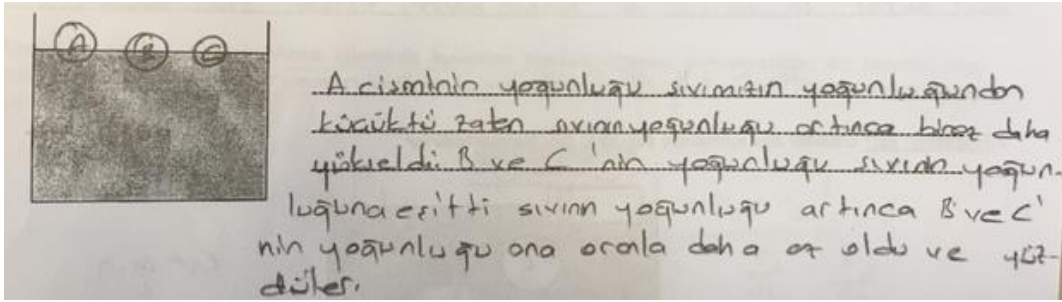 A B C
A cisminin yoğunluğu sıvımızın yoğunluğundan
küçüktü zaten sıvının yoğunluğu artınca biraz daha
yükseldi. B ve C 'nin yoğunluğu sıvının yoğun-
luğuna eşitti sıvının yoğunluğu artınca B ve C'
nin yoğunluğu ona oranla daha az oldu ve yüz-
düler.